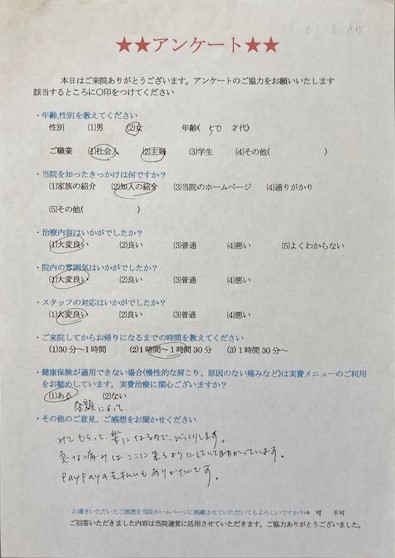 ★★アンケート★★
本日はご来院ありがとうございます。アンケートのご協力をお願いいたします
該当するところに〇印をつけてください
・年齢,性別を教えてください
性別 (1)男 (2)女 年齢( 50 才代)
ご職業 (1)社会人 (2)主婦 (3)学生 (4)その他( )
・当院を知ったきっかけは何ですか？
(1)家族の紹介 (2)知人の紹介 (3)当院のホームページ (4)通りがかり
(5)その他( )
・治療内容はいかがでしたか？
(1)大変良い (2)良い (3)普通 (4)悪い (5)よくわからない
・院内の雰囲気はいかがでしたか？
(1)大変良い (2)良い (3)普通 (4)悪い
・スタッフの対応はいかがでしたか？
(1)大変良い (2)良い (3)普通 (4)悪い
・ご来院してからお帰りになるまでの時間を教えてください
(1)30分～1時間 (2)1時間～1時間30分 (3)1時間30分～
・健康保険が適用できない場合(慢性的な肩こり、原因のない痛みなど)は実費メニューのご利用
をお勧めしています。実費治療に関心ございますか？
(1)ある (2)ない
金額によって
・その他のご意見、ご感想をお聞かせください
みてもらって楽になるので、びっくりします。
急な痛みはここに来るようにしていて助かっています。
PayPayの支払いもありがたいです。
お書きいただいたご感想を当院ホームページに掲載させていただいてもよろしいですか？⇒ 可 不可
ご回答いただきました内容は当院運営に活用させていただきます。ご協力ありがとうございました。